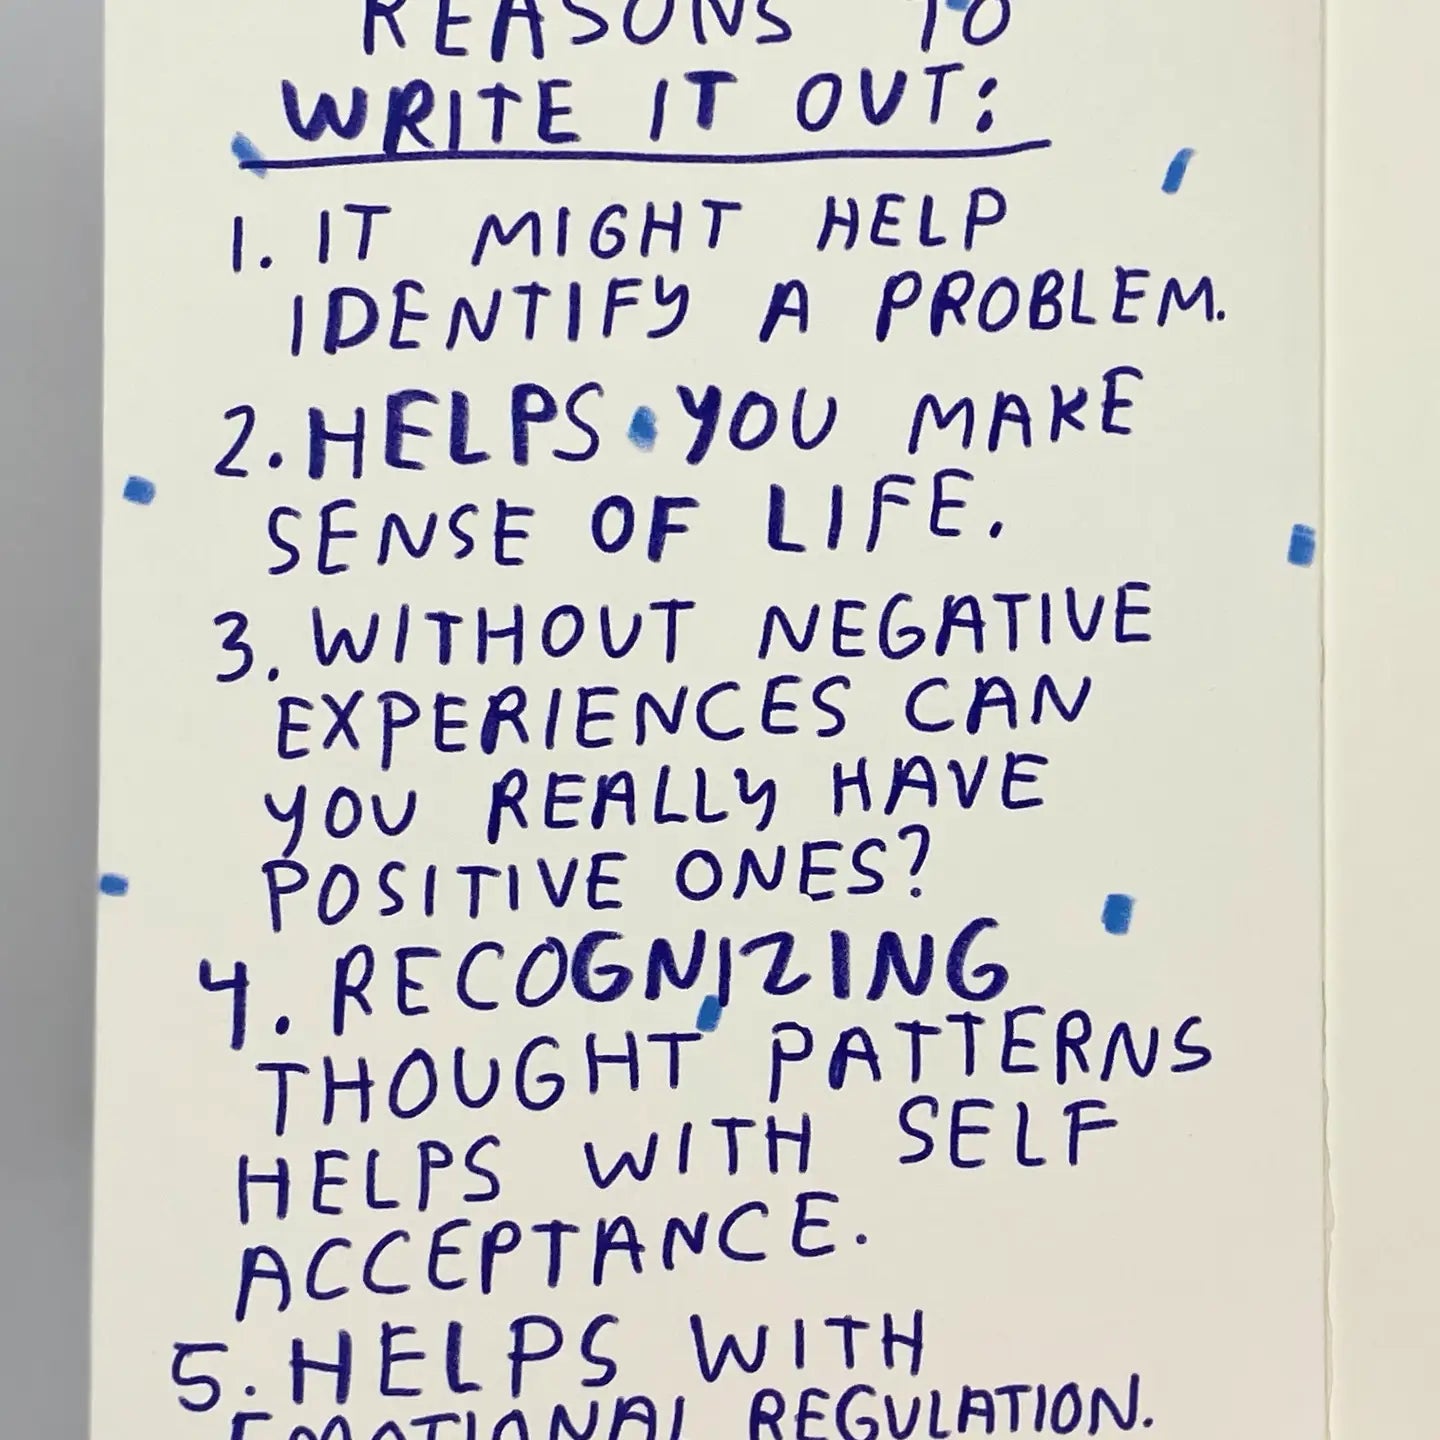 REASONS TO
WRITE IT OUT:
1. IT MIGHT HELP
IDENTIFY A PROBLEM.
2. HELPS YOU MAKE
SENSE OF LIFE.
3. WITHOUT NEGATIVE
EXPERIENCES CAN
YOU REALLY HAVE
POSITIVE ONES?
4. RECOGNIZING
THOUGHT PATTERNS
HELPS WITH SELF
ACCEPTANCE.
5. HELPS WITH
EMOTIONAL REGULATION.